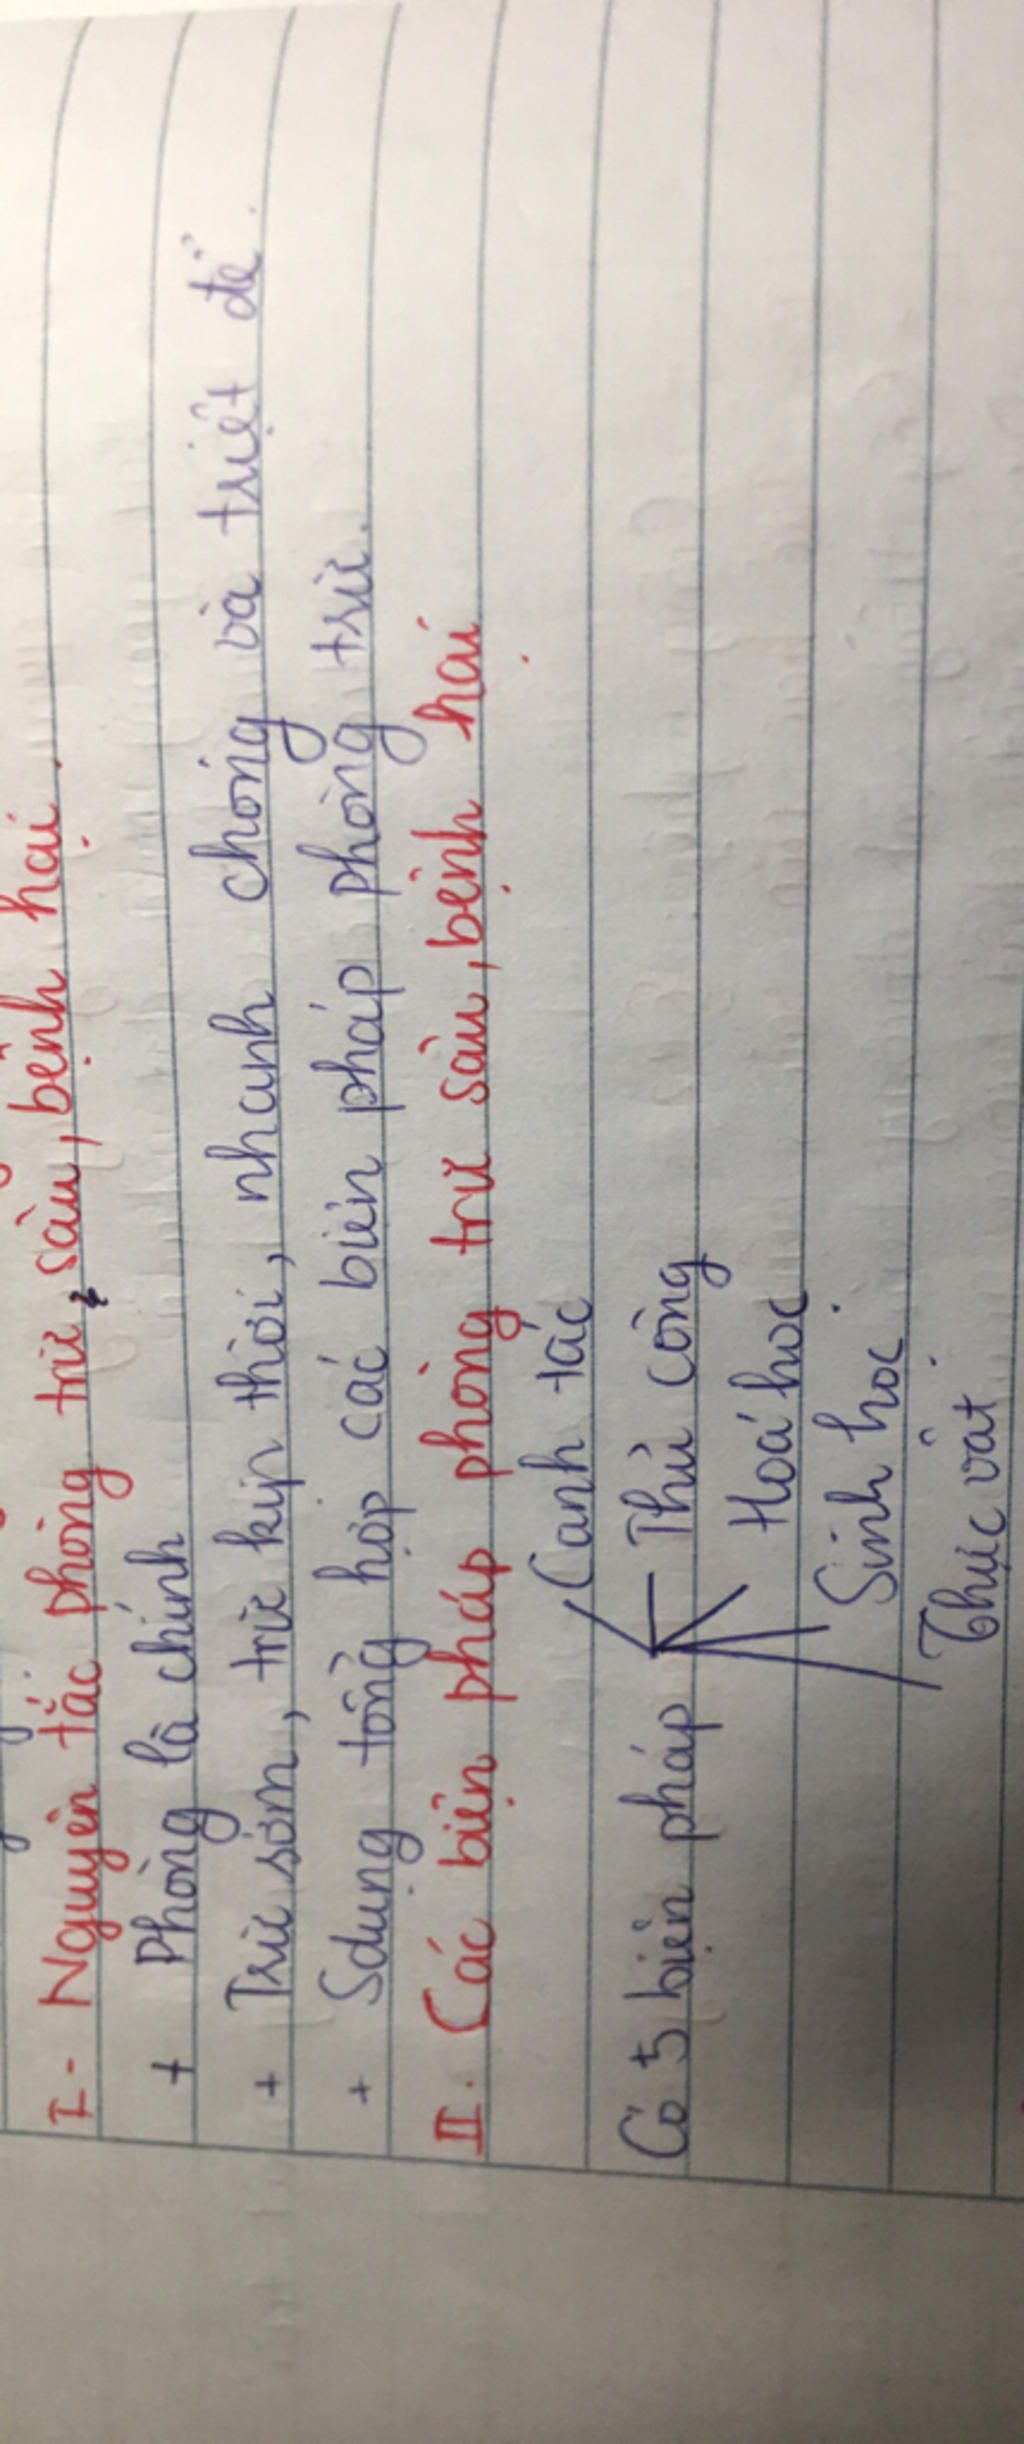 I - Nguyên tắc phòng trừ sâu, bệnh hại.
+ Phòng là chính
+ Trừ sớm, trừ kịp thời, nhanh chóng và triệt để.
+ Sdụng tổng hợp các biện pháp phòng trừ.
II. Các biện pháp phòng trừ sâu, bệnh hại
Canh tác
Có 5 biện pháp Thủ công
Hoá học
Sinh học
Thực vật